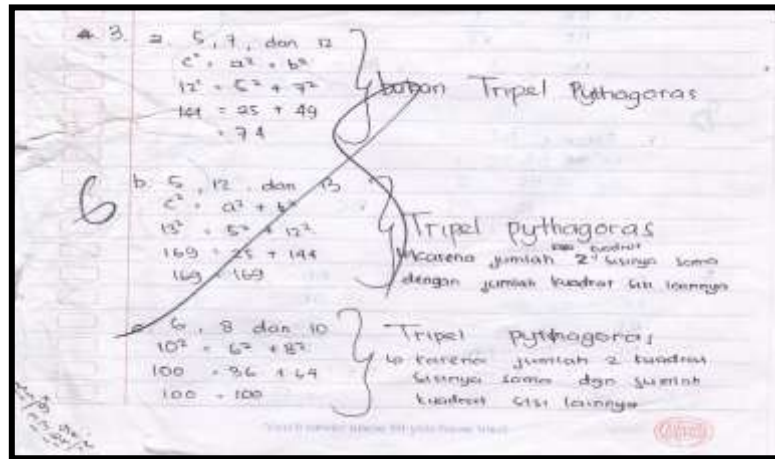 3. a. 5, 7, dan 12
c² = a² + b²
12² = 5² + 7²
144 = 25 + 49
= 74
bukan Tripel Pythagoras
6
b. 5, 12 dan 13
c² = a² + b²
13² = 5² + 12²
169 = 25 + 144
169 = 169
Tripel pythagoras
karena jumlah 2 kuadrat sisinya sama
dengan jumlah kuadrat sisi lainnya
6, 8 dan 10
10² = 6² + 8²
100 = 36 + 64
100 = 100
Tripel pythagoras
karena jumlah 2 kuadrat
sisinya sama dgn jumlah
kuadrat sisi lainnya